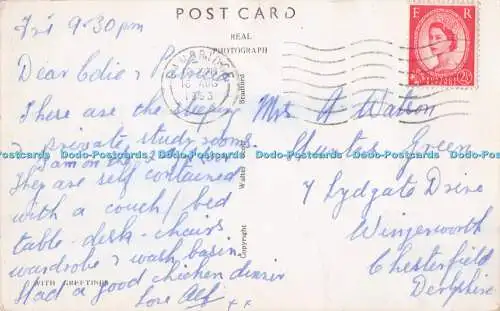 POST CARD
REAL
PHOTOGRAPH
Fri 9.30pm
CAMBRIDGE
1953
E R
2½
Dear Edie & Patricia
These are the sleeping
& private study rooms.
I am on the
They are self contained
with a couch/bed
table - desk - chairs
wardrobe & wash basin
Had a good chicken dinner
Love Alf x x
WITH GREETINGS
Copyright
Walter
Bradford
Mrs A Watson
Green
7 Lydgate Drive
Wingerworth
Chesterfield
Derbyshire
Dodo-Postcards Dodo-Postcards Dodo-Postcards Dodo-Postcards Dodo-Postcards Dodo-Postcards Dodo-Postcards